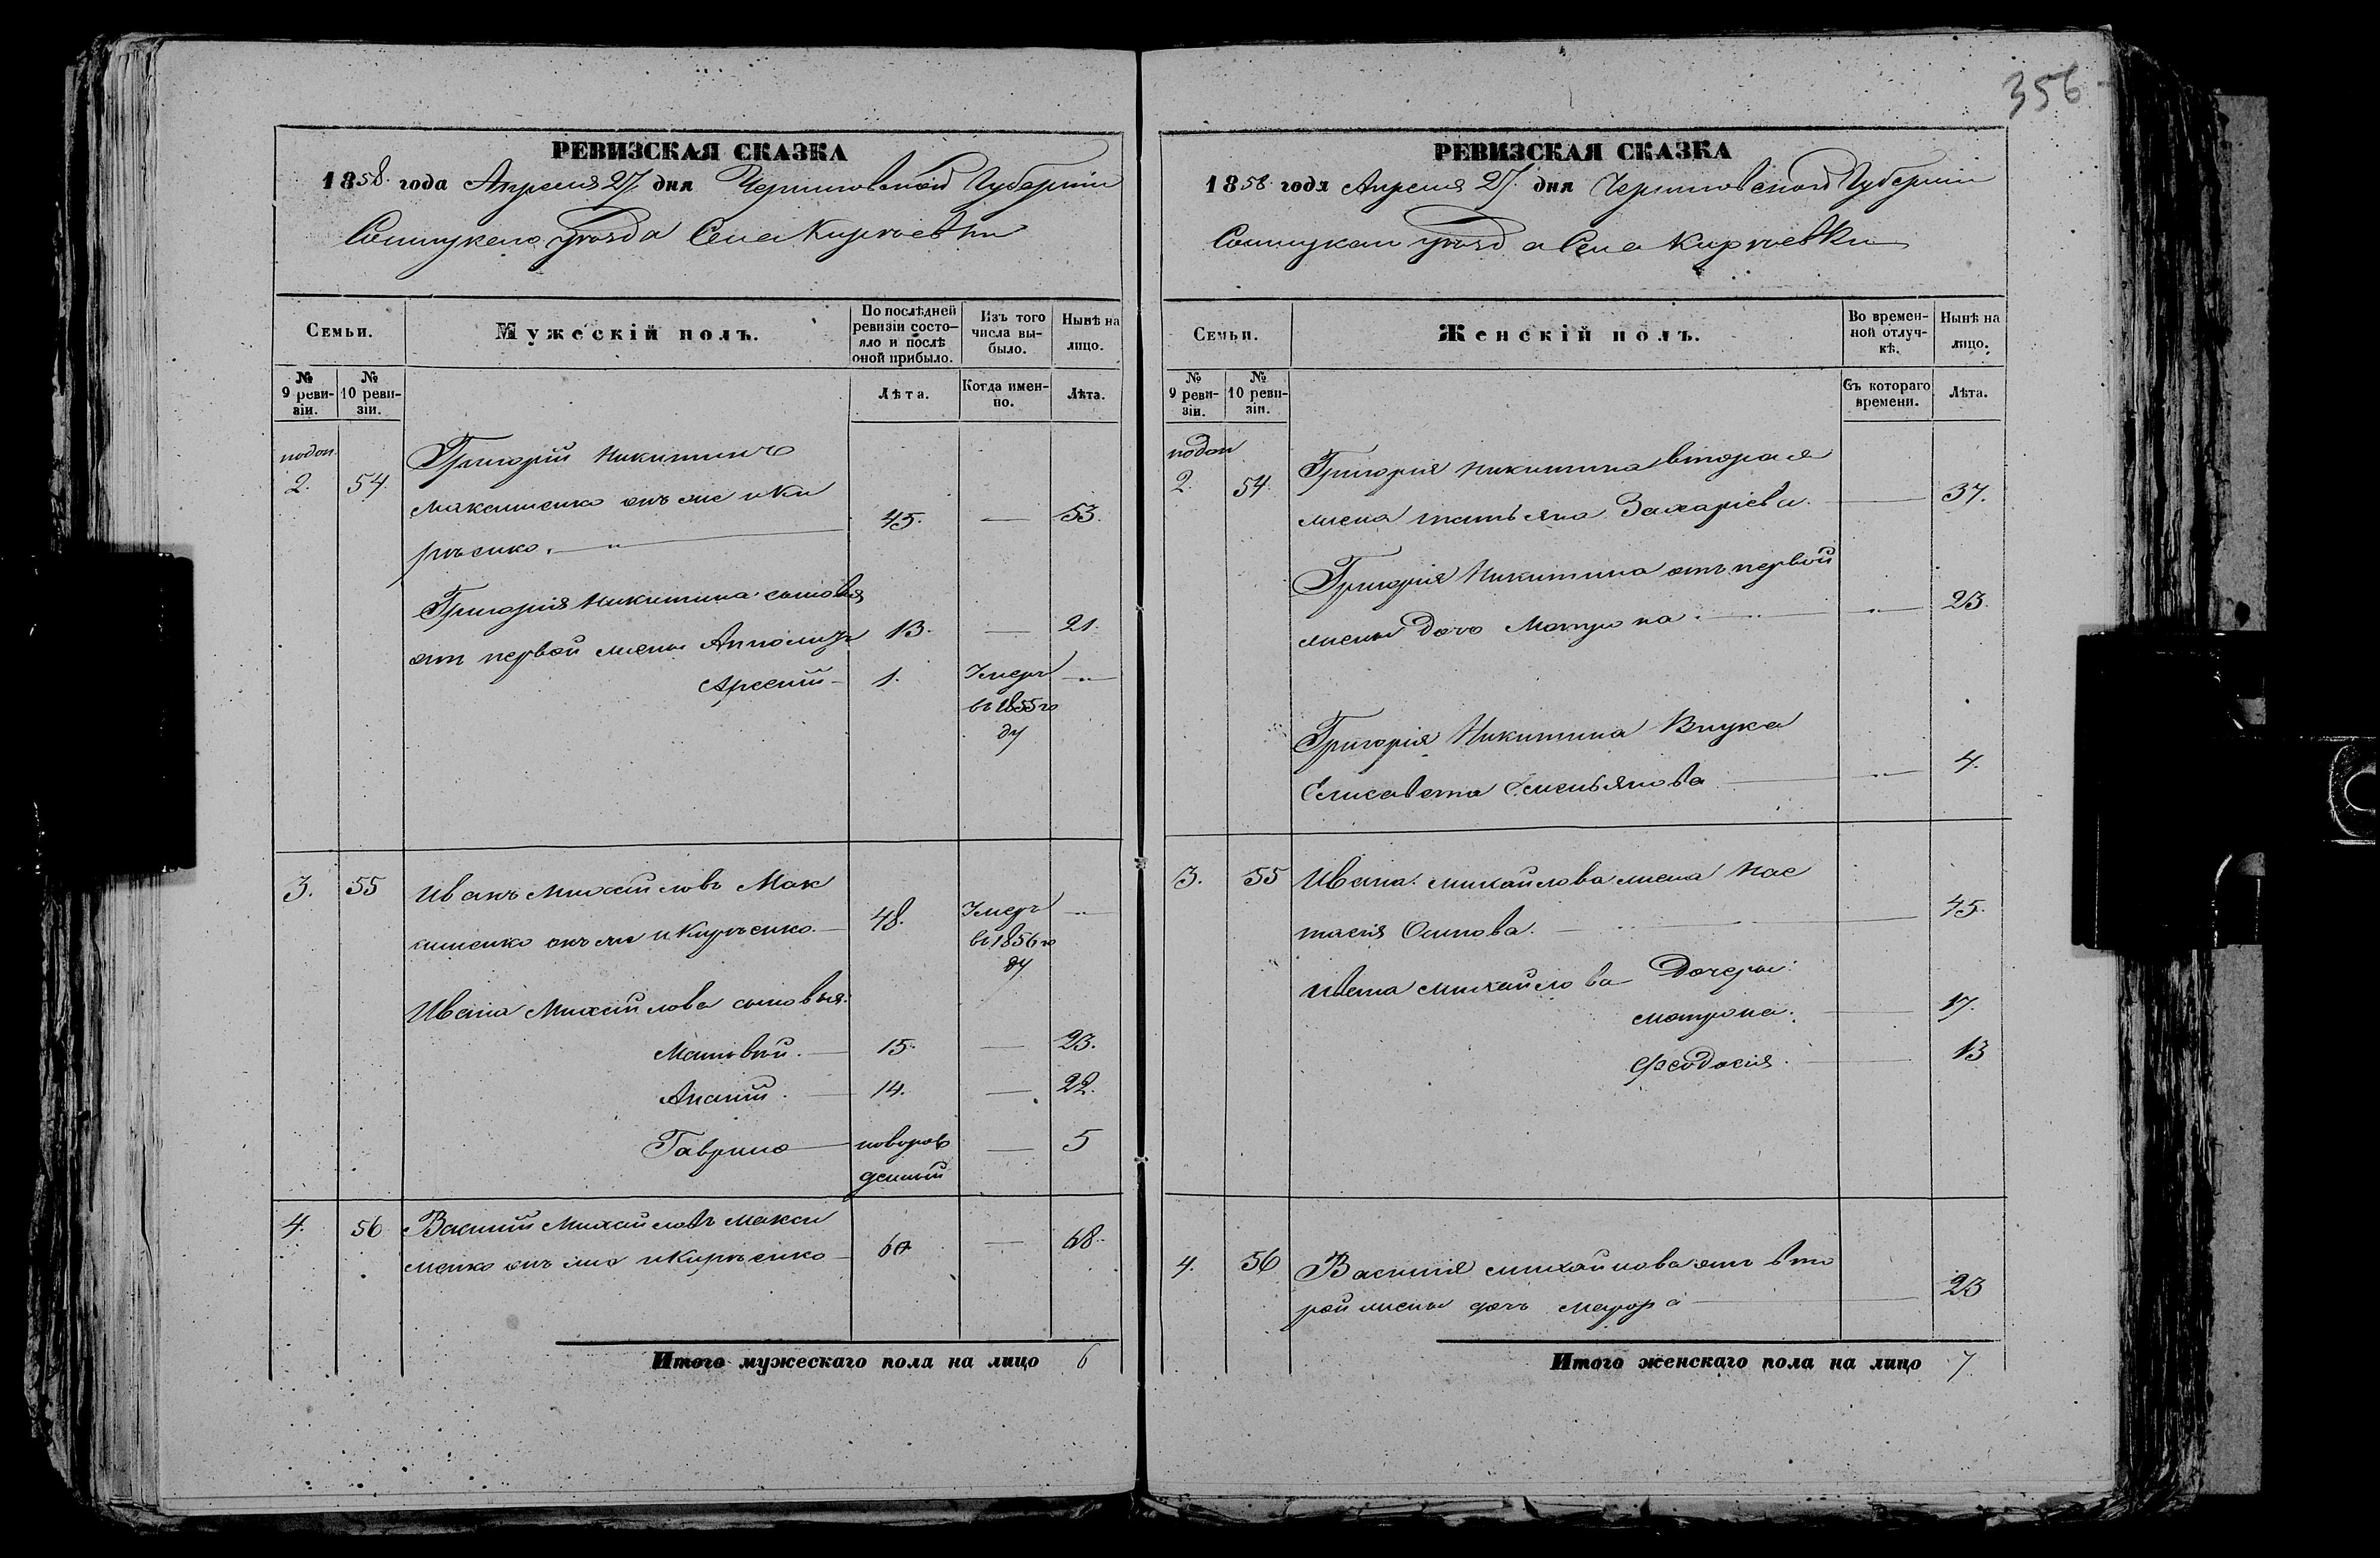 356
РЕВИЗСКАЯ СКАЗКА
1858 года Апреля 27 дня Черниговской Губернии
Сосницкаго уѣзда Села Киріевки
Семьи.
Мужескій полъ.
По послѣдней ревизіи состо-
яло и послѣ оной прибыло.
Изъ того числа вы-
было.
Нынѣ на лицо.
№ 9 реви-
зіи.
№ 10 реви-
зіи.
Лѣта.
Когда имен-
но.
Лѣта.
подоп.
2. 54. Григорій Никитинъ
Максименко онъ же и Ки
рѣенко. 45. — 53.
Григорія Никитина сыновья
отъ первой жены 13. — 21.
Арсеній 1. Умеръ
въ 1855 го
ду
3. 55 Иванъ Михайловъ Мак
сименко онъ же и Кирѣенко. 48. Умеръ
въ 1856 го
ду
Ивана Михайлова сыновья:
Матвѣй. 15. — 23.
Ананій. 14. — 22.
Гаврило новорож
денный — 5
4. 56 Василій Михайловъ Макси
менко онъ же и Кирѣенко 60 — 68.
Итого мужескаго пола на лицо 6
РЕВИЗСКАЯ СКАЗКА
1858 года Апреля 27 дня Черниговской Губернии
Сосницкаго уѣзда Села Киріевки
Семьи.
Женскій полъ.
Во времен-
ной отлуч-
кѣ.
Нынѣ на лицо.
№ 9 реви-
зіи.
№ 10 реви-
зіи.
Съ котораго времени.
Лѣта.
подоп
2. 54. Григорія Никитина вторая
жена Татьяна Захаріева. 37.
Григорія Никитина отъ первой
жены дочь Матрона. 23.
Григорія Никитина Внука
Елисавета Емельянова 4.
3. 55 Ивана Михайлова жена Нас
тасія Осипова. 45.
Ивана Михайлова Дочери:
Матрона. 17.
Феодосія. 13
4. 56 Василія Михайлова отъ вто
рой жены дочь Мафра 23
Итого женскаго пола на лицо 7